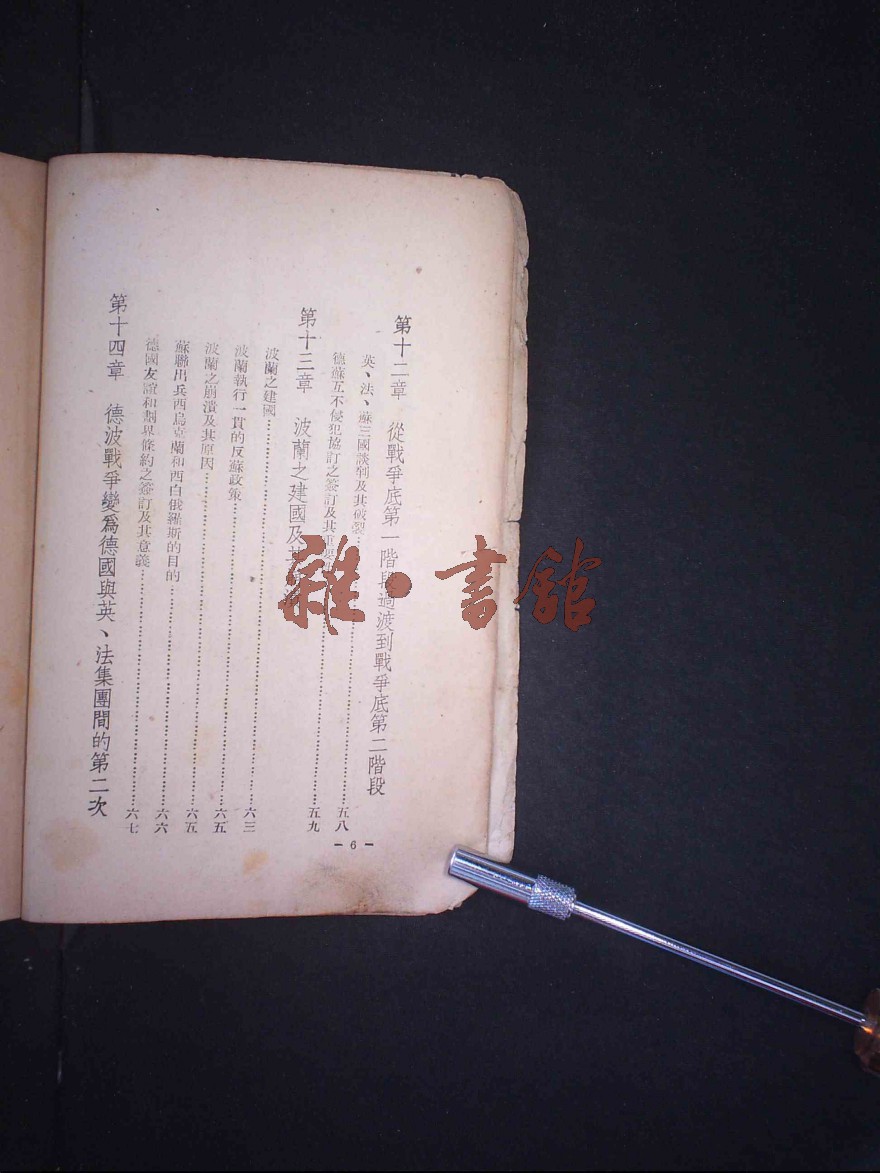 第十二章　從戰爭底第一階段過渡到戰爭底第二階段
英、法、蘇三國談判及其破裂……五八
德蘇互不侵犯協訂之簽訂及其重要……五九
第十三章　波蘭之建國及其
波蘭之建國……六三
波蘭執行一貫的反蘇政策……六五
波蘭之崩潰及其原因……六五
蘇聯出兵西烏克蘭和西白俄羅斯的目的……六六
德國友誼和劃界條約之簽訂及其意義……六七
第十四章　德波戰爭變為德國與英、法集團間的第二次
- 6 -
雜·書館